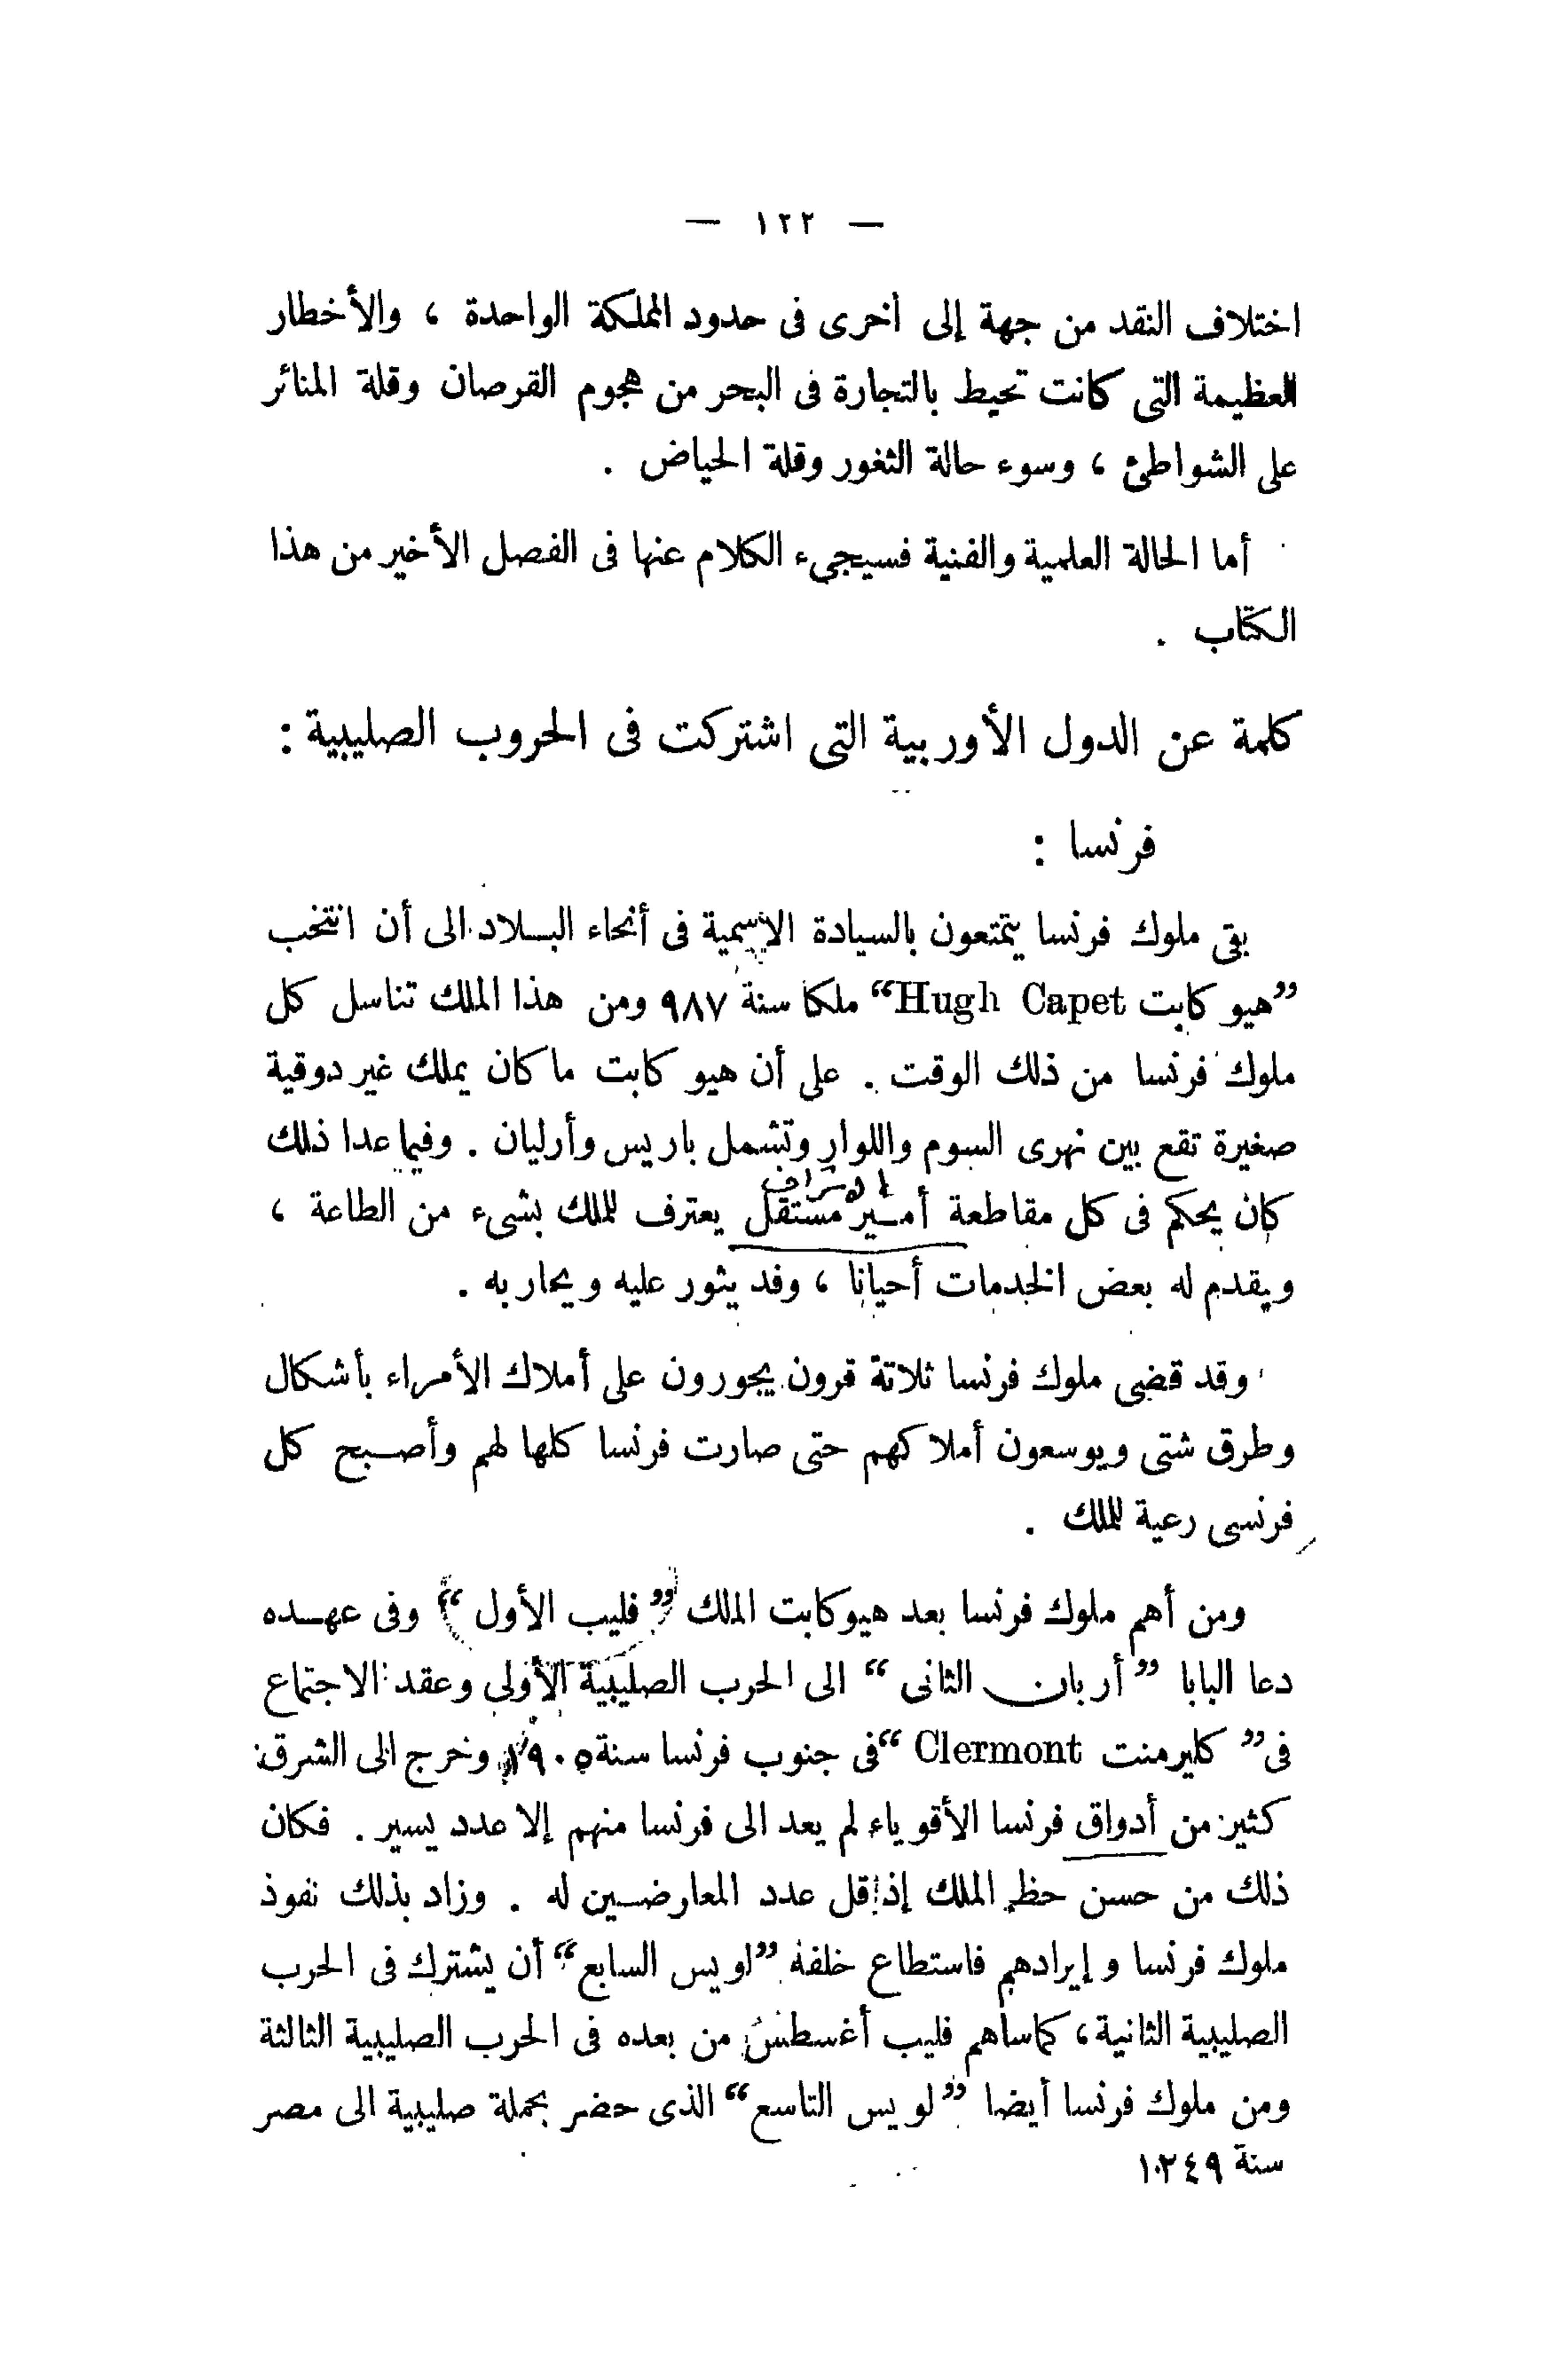 — ١٢٢ —
اختلاف النقد من جهة إلى أخرى فى حدود المملكة الواحدة ، والأخطار
العظيمة التى كانت تحيط بالتجارة فى البحر من هجوم القرصان وقلة المنائر
على الشواطئ ، وسوء حالة الثغور وقلة الحياض .
أما الحالة العلمية والفنية فسيجىء الكلام عنها فى الفصل الأخير من هذا
الكتاب .
كلمة عن الدول الأوربية التى اشتركت فى الحروب الصليبية :
فرنسا :
بقى ملوك فرنسا يتمتعون بالسيادة الإسمية فى أنحاء البلاد الى أن انتخب
”هيو كابت Hugh Capet“ ملكا سنة ٩٨٧ ومن هذا الملك تناسل كل
ملوك فرنسا من ذلك الوقت . على أن هيو كابت ما كان يملك غير دوقية
صغيرة تقع بين نهرى السوم واللوار وتشمل باريس وأرليان . وفيما عدا ذلك
الاشراف
كان يحكم فى كل مقاطعة أمير مستقل يعترف للملك بشىء من الطاعة ،
ويقدم له بعض الخدمات أحيانا ، وقد يثور عليه ويحاربه .
وقد قضى ملوك فرنسا ثلاثة قرون يجورون على أملاك الأمراء بأشكال
وطرق شتى ويوسعون أملاكهم حتى صارت فرنسا كلها لهم وأصبح كل
فرنسى رعية للملك .
ومن أهم ملوك فرنسا بعد هيوكابت الملك ”فليب الأول“ وفى عهده
دعا البابا ”أربان الثانى“ الى الحرب الصليبية الأولى وعقد الاجتماع
فى ”كليرمنت Clermont“ فى جنوب فرنسا سنة ١٠٩٥ وخرج الى الشرق
كثير من أدواق فرنسا الأقوياء لم يعد الى فرنسا منهم إلا عدد يسير . فكان
ذلك من حسن حظ الملك إذ قل عدد المعارضين له . وزاد بذلك نفوذ
ملوك فرنسا وإيرادهم فاستطاع خلفه ”لويس السابع“ أن يشترك فى الحرب
الصليبية الثانية ، كما ساهم فليب أغسطس من بعده فى الحرب الصليبية الثالثة
ومن ملوك فرنسا أيضا ”لويس التاسع“ الذى حضر بحملة صليبية الى مصر
سنة ١٢٤٩